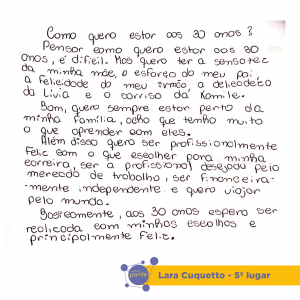 Como quero estar aos 30 anos?
Pensar como quero estar aos 30
anos, é difícil. Mas quero ter a sensatez
da minha mãe, o esforço do meu pai,
a felicidade do meu irmão, a delicadeza
da Lívia e o sorriso da Kamile.
Bom, quero sempre estar perto da
minha família, acho que tenho muito
o que aprender com eles.
Além disso quero ser profissionalmente
feliz com o que escolher para minha
carreira, ser a profissional desejada pelo
mercado de trabalho, ser financeira-
-mente independente e quero viajar
pelo mundo.
Basicamente, aos 30 anos espero ser
realizada com minhas escolhas e
principalmente feliz.
ponte
Lara Cuquetto - 5º lugar